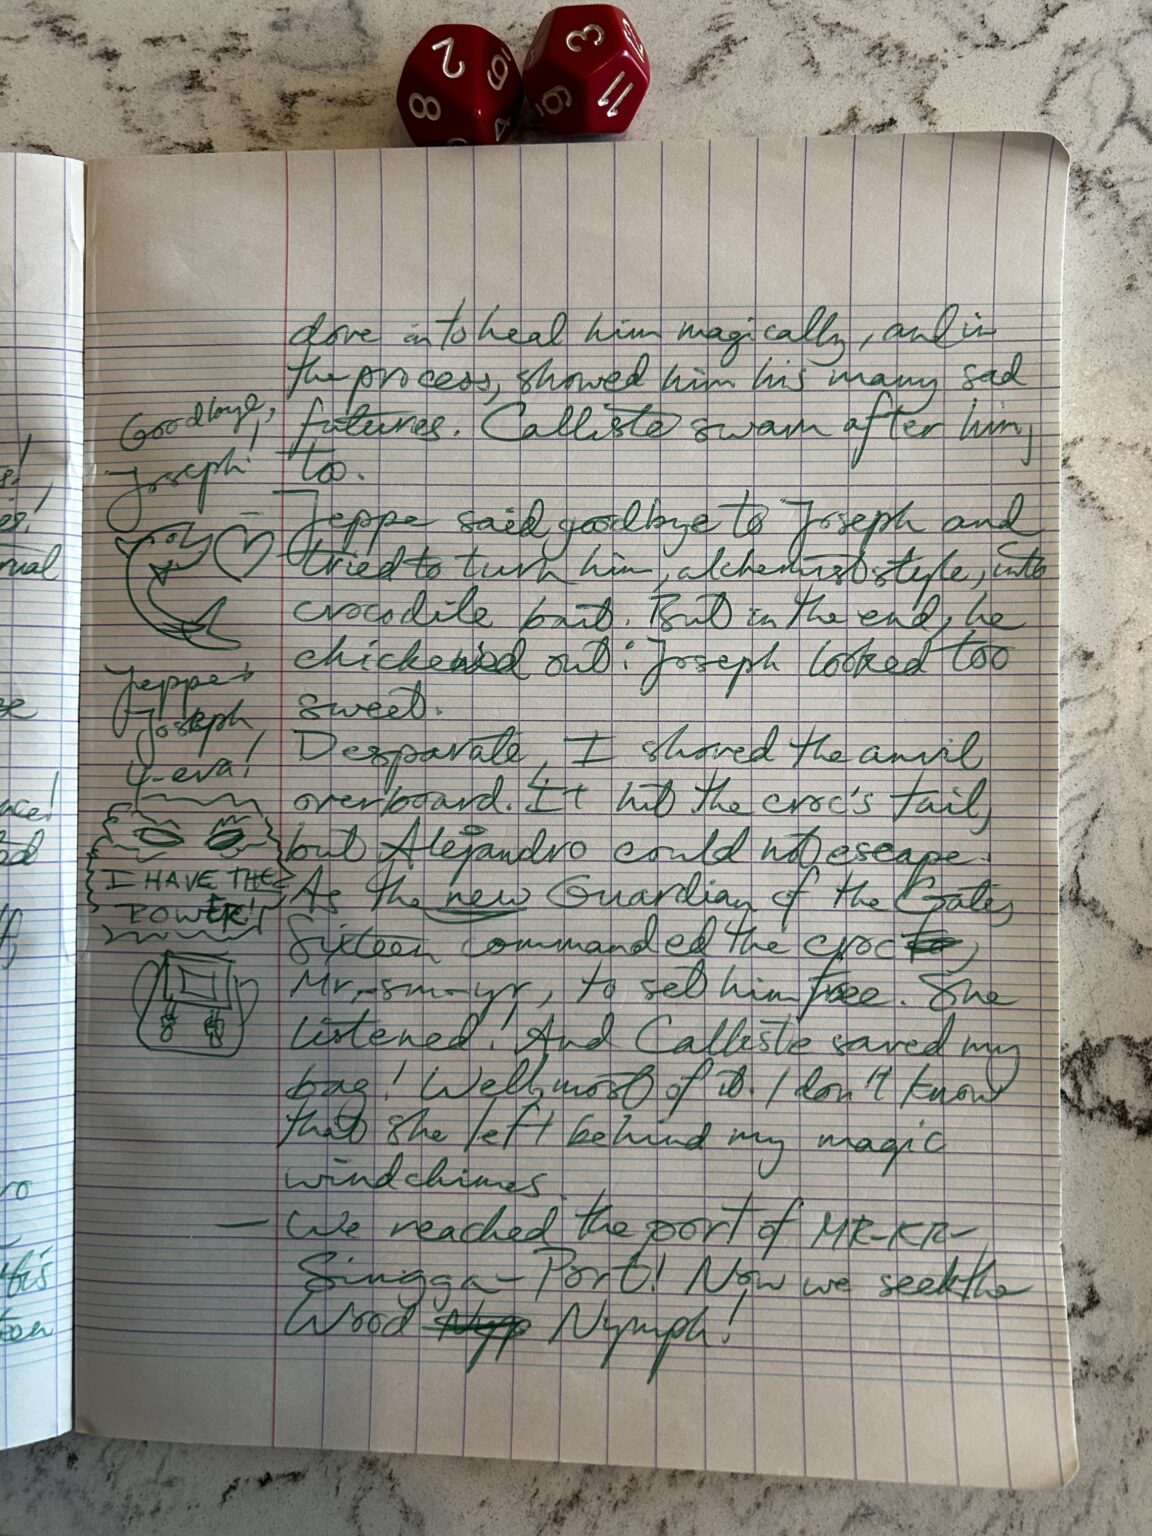 2
9
8
4
3
11
9
dove in to heal him magically, and in
the process, showed him his many sad
futures. Calliste swam after him,
too.
Jeppe said goodbye to Joseph and
tried to turn him, alchemist style, into
crocodile bait. But in the end, he
chickened out: Joseph looked too
sweet.
Desparate, I shoved the anvil
overboard. It hit the croc's tail,
but Alejandro could not escape.
As the new Guardian of the Gate,
Sixteen commanded the croc,
Mr-sm-yr, to set him free. She
listened! And Calliste saved my
bag! Well, most of it. I don't know
that she left behind my magic
windchimes.
— We reached the port of MR-KR-
Singga-Port! Now we seek the
Wood Nymph!
Goodbye,
Joseph!
Jeppe +
Joseph
4-eva!
I HAVE THE
POWER!